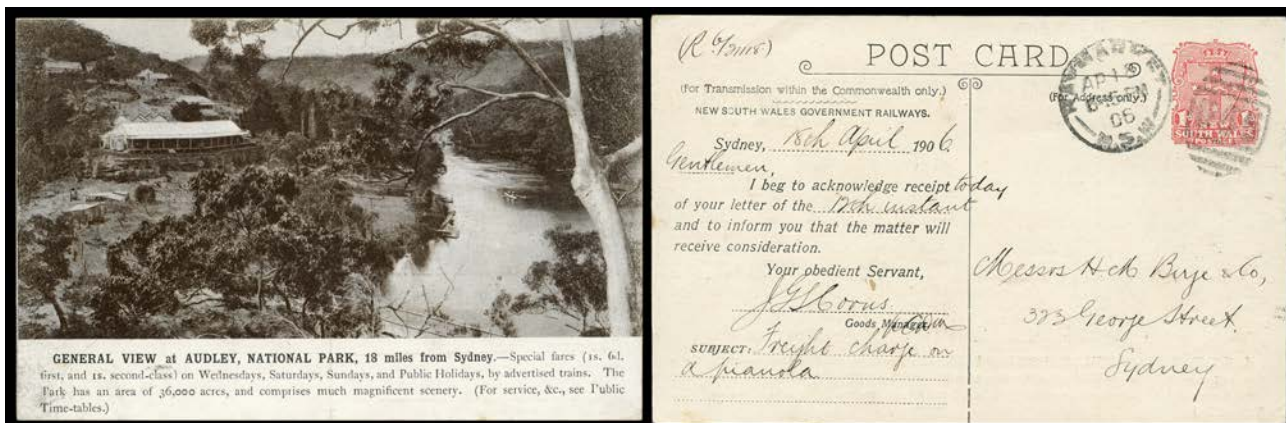 GENERAL VIEW at AUDLEY, NATIONAL PARK, 18 miles from Sydney.—Special fares (1s. 6d.
first, and 1s. second-class) on Wednesdays, Saturdays, Sundays, and Public Holidays, by advertised trains. The
Park has an area of 36,000 acres, and comprises much magnificent scenery. (For service, &c., see Public
Time-tables.)
POST CARD
(For Transmission within the Commonwealth only.)
(For Address only.)
NEW SOUTH WALES GOVERNMENT RAILWAYS.
Sydney, 18th April 1906.
Gentlemen,
I beg to acknowledge receipt today
of your letter of the 12th instant
and to inform you that the matter will
receive consideration.
Your obedient Servant,
Goods Manager
SUBJECT: Freight charge on
a pianola
AP 18
06
N.S.W
1d
NEW
SOUTH WALES
Messrs H M Birge & Co,
323 George Street.
Sydney